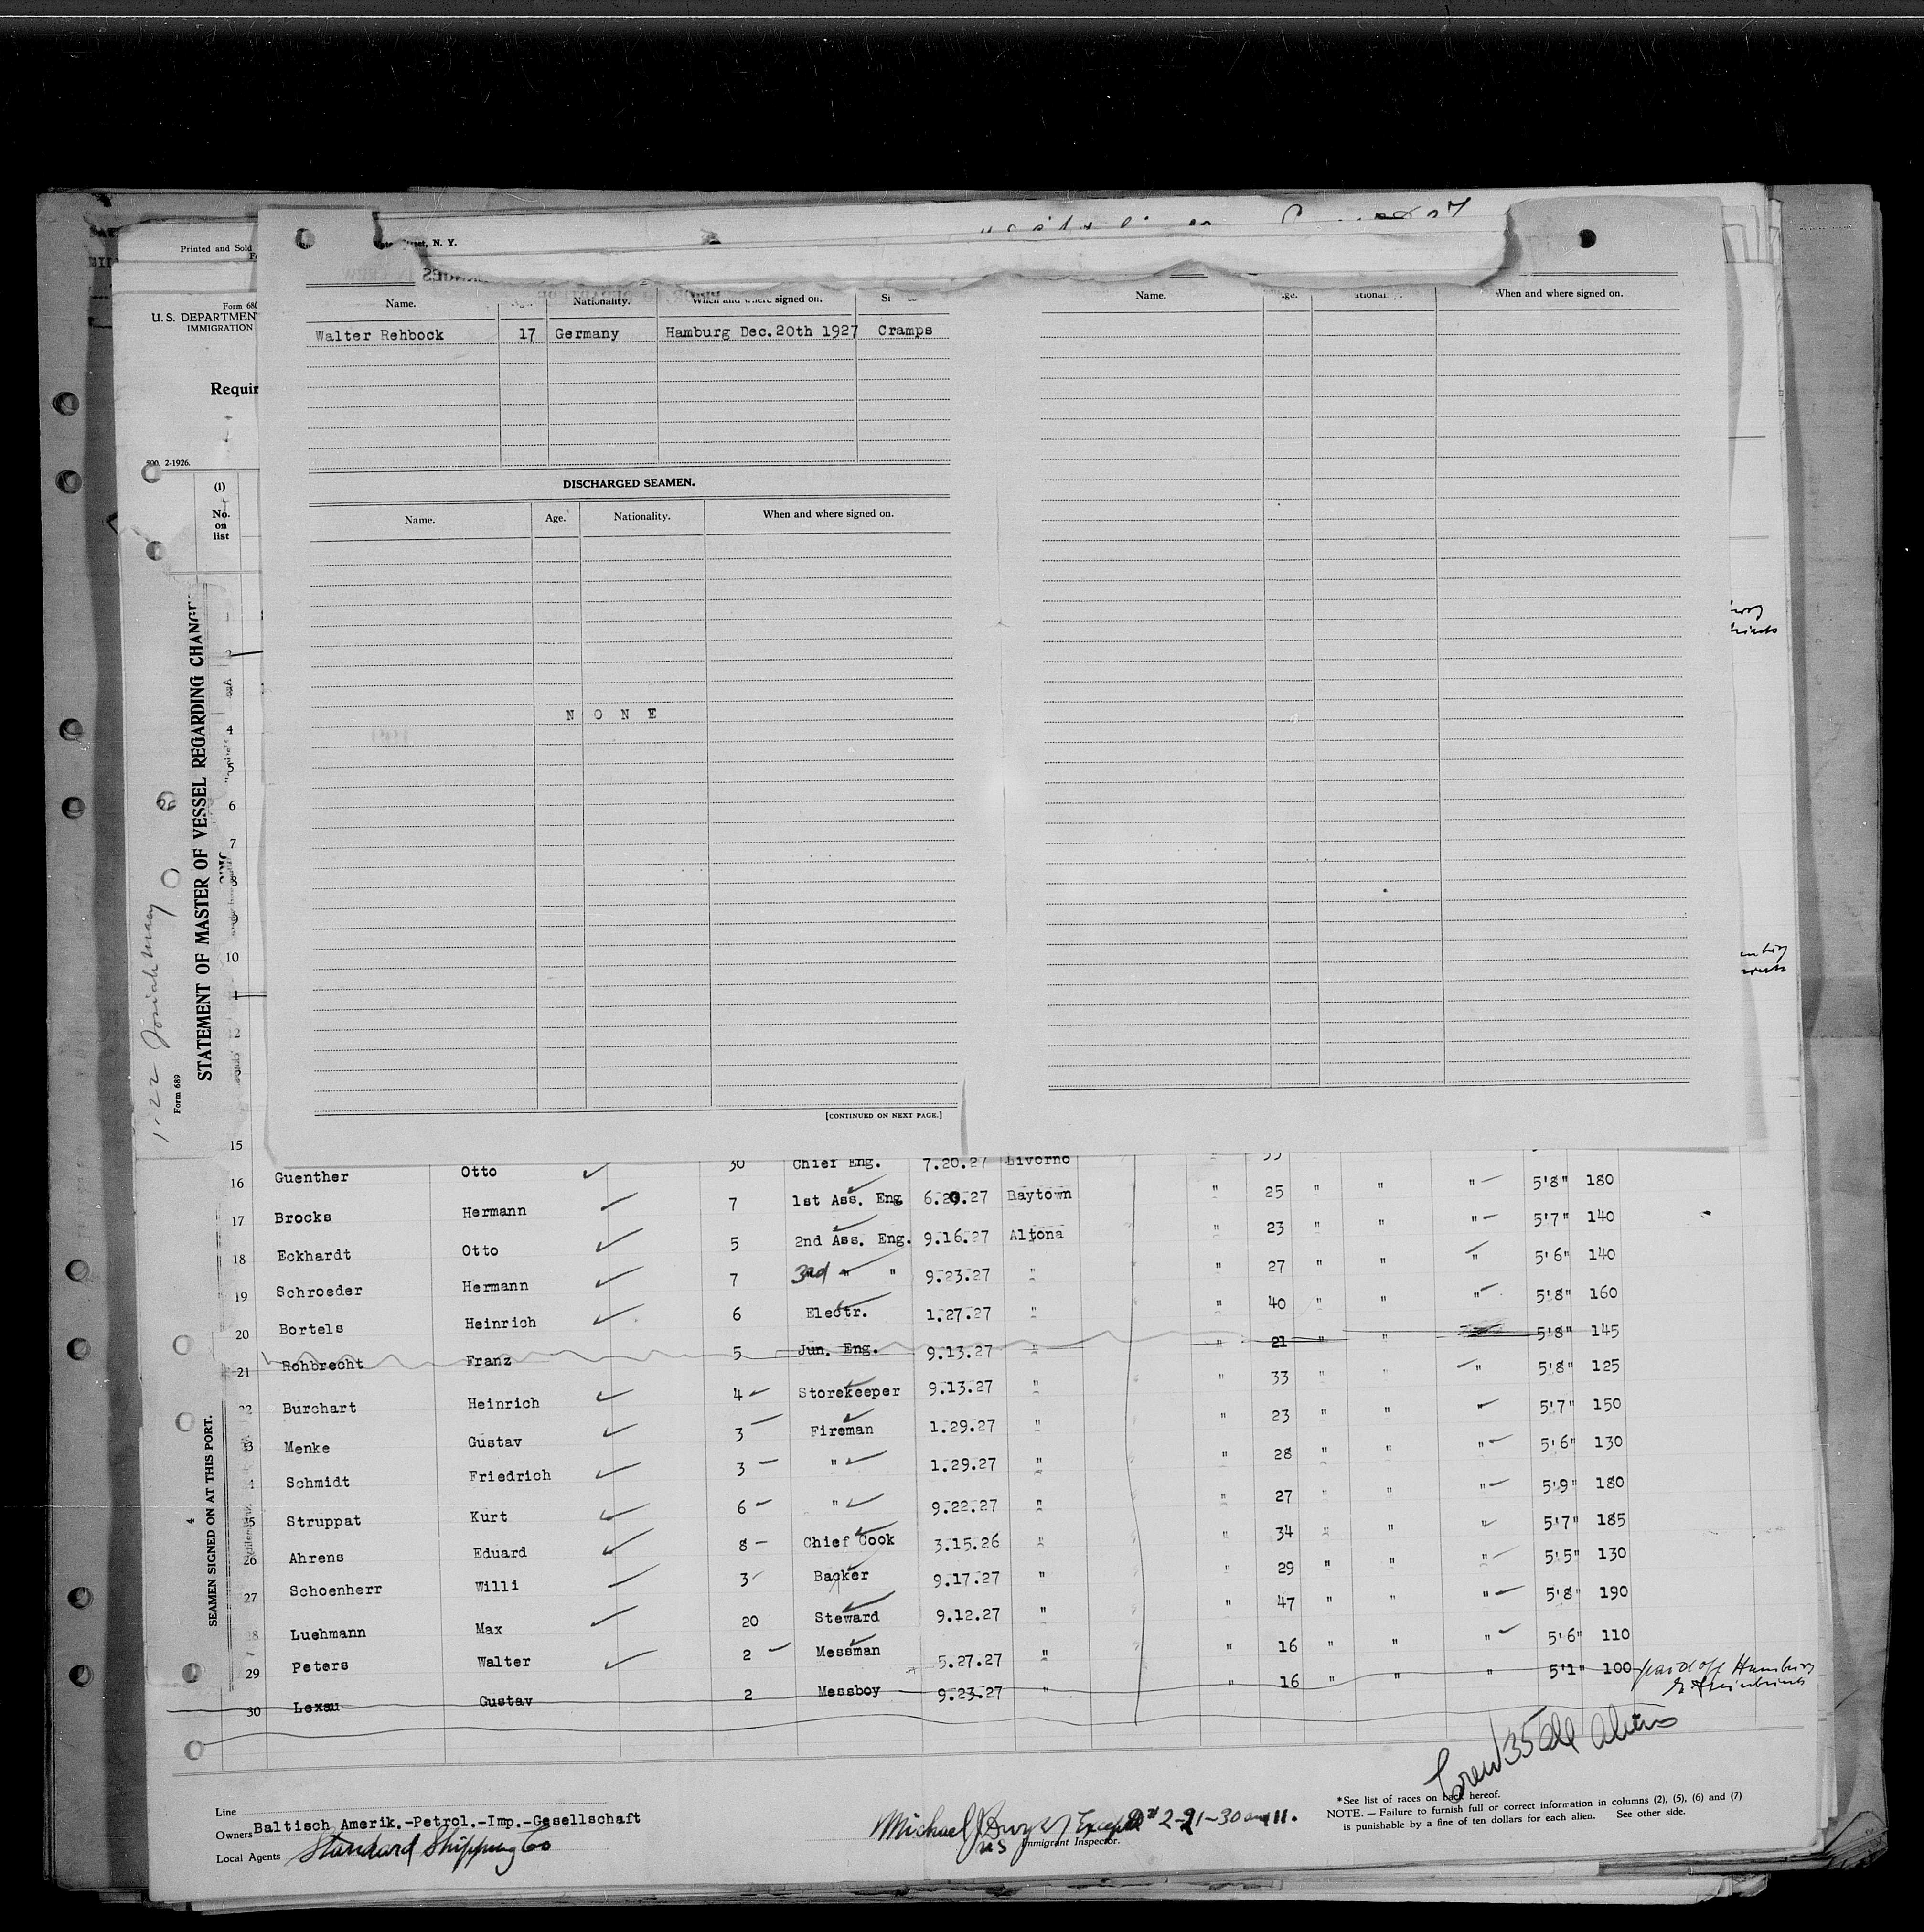 Printed and Sold
N. Y.
Form 680
U. S. DEPARTMENT
IMMIGRATION
Requir
500. 2-1926.
(1)
No.
on
list
Name. Nationality. When and where signed on.
Walter Rehbock 17 Germany Hamburg Dec.20th 1927 Cramps
DISCHARGED SEAMEN.
Name. Age. Nationality. When and where signed on.
N O N E
[CONTINUED ON NEXT PAGE.]
Name. When and where signed on.
1-22 Josiah Macy
Form 689
STATEMENT OF MASTER OF VESSEL REGARDING CHANGE
4
SEAMEN SIGNED ON AT THIS PORT.
4
5
6
7
8
9
10
12
15
16 Guenther Otto 30 Chief Eng. 7.20.27 Livorno " 35
17 Brocks Hermann 7 1st Ass. Eng 6.29.27 Baytown " 25 " " " 5'8" 180
18 Eckhardt Otto 5 2nd Ass. Eng. 9.16.27 Altona " 23 " " " 5'7" 140
19 Schroeder Hermann 7 3rd " " 9.23.27 " " 27 " " " 5'6" 140
20 Bortels Heinrich 6 Electr. 1.27.27 " " 40 " " " 5'8" 160
21 Rohbrecht Franz 5 Jun. Eng. 9.13.27 " " 21 " " 5'8" 145
22 Burchart Heinrich 4 Storekeeper 9.13.27 " " 33 " " " 5'8" 125
23 Menke Gustav 3 Fireman 1.29.27 " " 23 " " " 5'7" 150
24 Schmidt Friedrich 3 " 1.29.27 " " 28 " " " 5'6" 130
25 Struppat Kurt 6 " 9.22.27 " " 27 " " " 5'9" 180
26 Ahrens Eduard 8 Chief Cook 3.15.26 " " 34 " " " 5'7" 185
27 Schoenherr Willi 3 Backer 9.17.27 " " 29 " " " 5'5" 130
28 Luehmann Max 20 Steward 9.12.27 " " 47 " " " 5'8" 190
29 Peters Walter 2 Messman 5.27.27 " " 16 " " " 5'6" 110
30 Lexau Gustav 2 Messboy 9.23.27 " " 16 " " " 5'1" 100 paid off Hamburg
Crew 35 all aliens
Line
Owners Baltisch Amerik.-Petrol.-Imp.-Gesellschaft
Local Agents Standard Shipping Co
Michael J Dwyer Except # 2-21-30 and 11.
US Immigrant Inspector.
*See list of races on back hereof.
NOTE. — Failure to furnish full or correct information in columns (2), (5), (6) and (7)
is punishable by a fine of ten dollars for each alien. See other side.